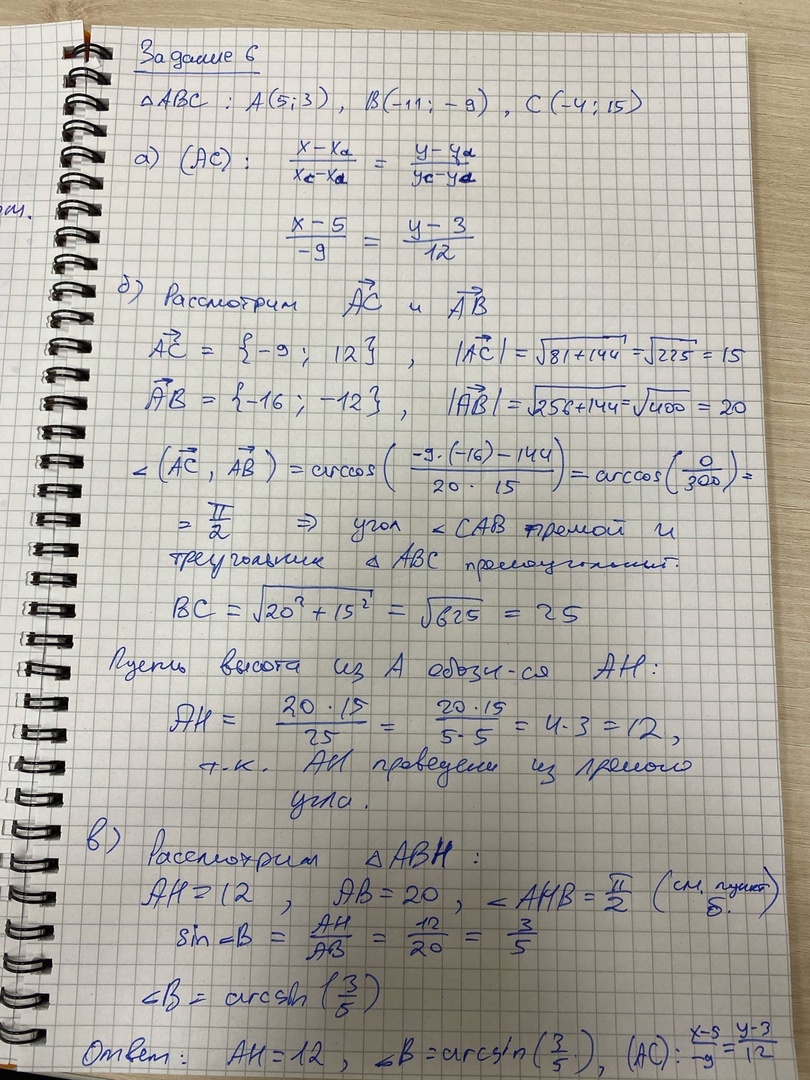 Задание 6
△ABC : A(5;3), B(-11; -9), C(-4; 15)
а) (AC): (x-x_A)/(x_C-x_A) = (y-y_A)/(y_C-y_A)
(x-5)/(-9) = (y-3)/12
б) Рассмотрим AC⃗ и AB⃗
AC⃗ = {-9; 12}, |AC⃗| = √(81+144) = √225 = 15
AB⃗ = {-16; -12}, |AB⃗| = √(256+144) = √400 = 20
∠(AC⃗, AB⃗) = arccos((-9·(-16)-144)/(20·15)) = arccos(0/300) =
= π/2 ⇒ угол ∠CAB прямой и
треугольник △ABC прямоугольный.
BC = √(20²+15²) = √625 = 25
Пусть высота из A обозн-ся AH:
AH = (20·15)/25 = (20·15)/(5·5) = 4·3 = 12,
т.к. AH проведена из прямого
угла.
в) Рассмотрим △ABH:
AH = 12, AB = 20, ∠AHB = π/2 (см. пункт б.)
sin ∠B = AH/AB = 12/20 = 3/5
∠B = arcsin(3/5)
Ответ: AH = 12, ∠B = arcsin(3/5), (AC): (x-5)/(-9) = (y-3)/12